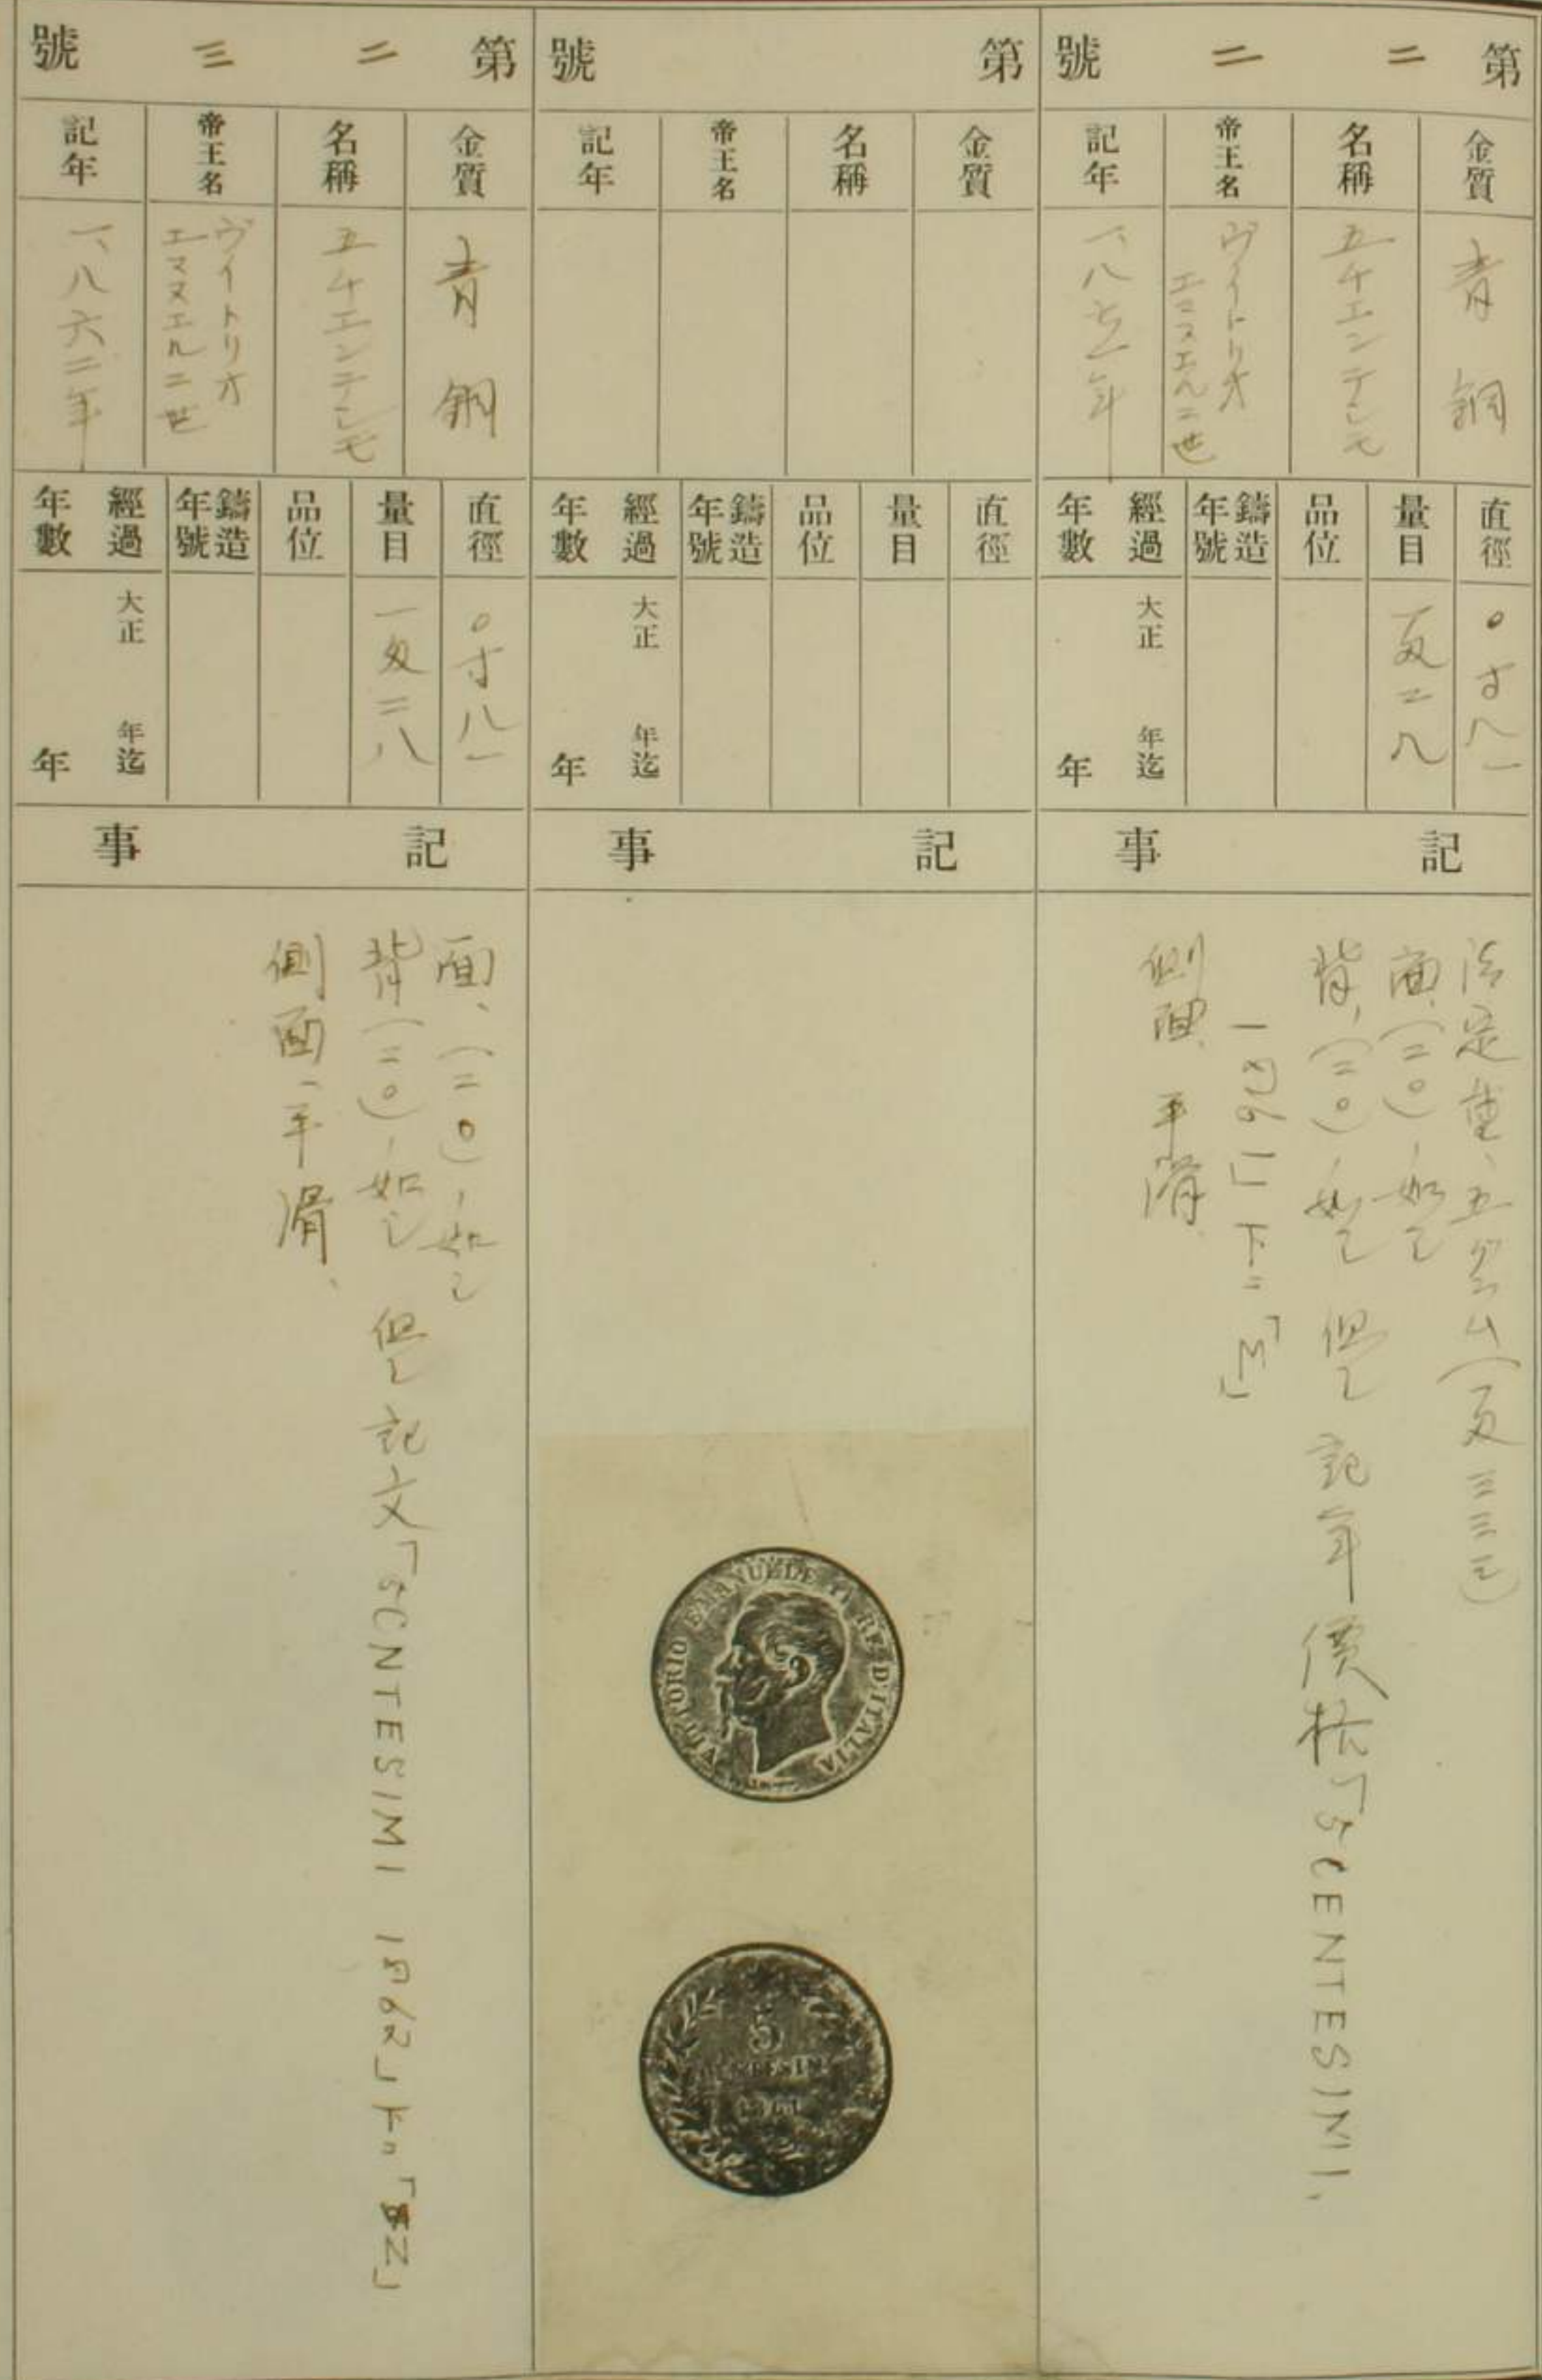 第二二號
金質
青銅
名稱
五チエンテシモ
帝王名
ヴイトリオ
エマヌエル二世
記年
一八六一年
直徑
〇寸八一
量目
一匁二八
品位
鑄造
年號
經過
年數
大正 年迄
年
記事
法定量、五グラム(一匁三三三)
面、(二〇)ノ如シ
背、(二〇)ノ如シ 但シ 記年 價格「5 CENTESIMI.
1861」下ニ「M」
側面、平滑、
第 號
金質
名稱
帝王名
記年
直徑
量目
品位
鑄造
年號
經過
年數
大正 年迄
年
記事
VITTORIO EMANUELE II RE D'ITALIA
5
CENTESIMI
1861
第二三號
金質
青銅
名稱
五チエンテシモ
帝王名
ヴイトリオ
エマヌエル二世
記年
一八六二年
直徑
〇寸八一
量目
一匁二八
品位
鑄造
年號
經過
年數
大正 年迄
年
記事
面、(二〇)ノ如シ
背(二〇)ノ如シ 但シ 記文「5 CNTESIMI 1862」下ニ「N」
側面、平滑、